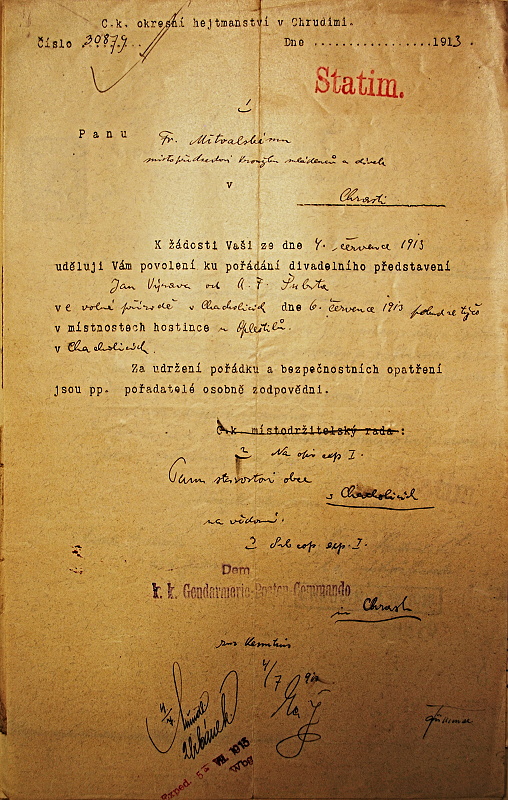 C.k. okresní hejtmanství v Chrudimi.
Číslo 20879 Dne .................1913.
Statim.
Panu Fr. Mitvalskému
místopředsedovi kroužku mládenců a dívek
v
Chrasti
K žádosti Vaší ze dne 4. července 1913
uděluji Vám povolení ku pořádání divadelního představení
Jan Výrava od
ve volné přírodě v Chacholicích dne 6. července 1913
v místnostech hostince u
v Chacholicích.
Za udržení pořádku a bezpečnostních opatření
jsou pp. pořadatelé osobně zodpovědni.
C.k. místodržitelský rada :
Na opis exp I.
Panu starostovi obce
v Chacholicích
na vědomí.
cop. exp. I.
Dem
k. k. Gendarmerie-Posten-Commando
in Chrast
zur Kenntnis
4/7
Exped. 5 VII. 1913